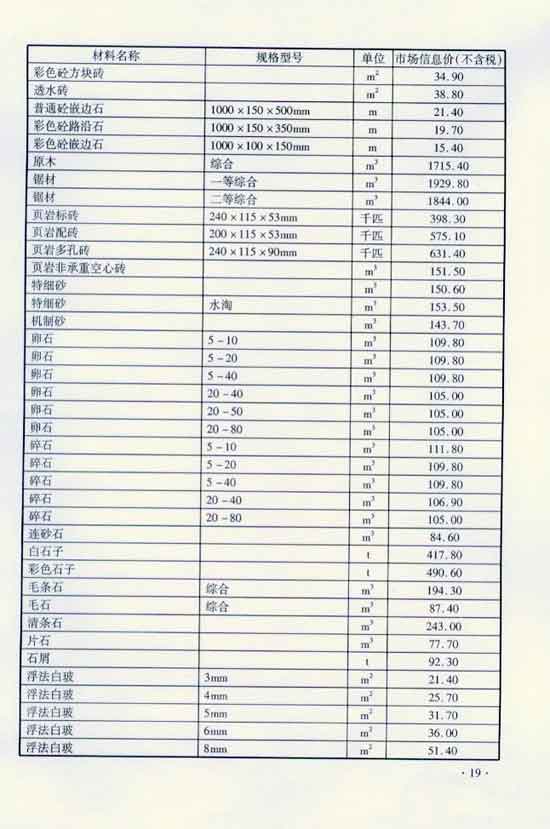 材料名称 规格型号 单位 市场信息价(不含税)
彩色砼方块砖 m² 34.90
透水砖 m² 38.80
普通砼嵌边石 1000×150×500mm m 21.40
彩色砼路沿石 1000×150×350mm m 19.70
彩色砼嵌边石 1000×100×150mm m 15.40
原木 综合 m³ 1715.40
锯材 一等综合 m³ 1929.80
锯材 二等综合 m³ 1844.00
页岩标砖 240×115×53mm 千匹 398.30
页岩配砖 200×115×53mm 千匹 575.10
页岩多孔砖 240×115×90mm 千匹 631.40
页岩非承重空心砖 m³ 151.50
特细砂 m³ 150.60
特细砂 水淘 m³ 153.50
机制砂 m³ 143.70
卵石 5-10 m³ 109.80
卵石 5-20 m³ 109.80
卵石 5-40 m³ 109.80
卵石 20-40 m³ 105.00
卵石 20-50 m³ 105.00
卵石 20-80 m³ 105.00
碎石 5-10 m³ 111.80
碎石 5-20 m³ 109.80
碎石 5-40 m³ 109.80
碎石 20-40 m³ 106.90
碎石 20-80 m³ 105.00
连砂石 m³ 84.60
白石子 t 417.80
彩色石子 t 490.60
毛条石 综合 m³ 194.30
毛石 综合 m³ 87.40
清条石 m³ 243.00
片石 m³ 77.70
石屑 t 92.30
浮法白玻 3mm m² 21.40
浮法白玻 4mm m² 25.70
浮法白玻 5mm m² 31.70
浮法白玻 6mm m² 36.00
浮法白玻 8mm m² 51.40
·19·